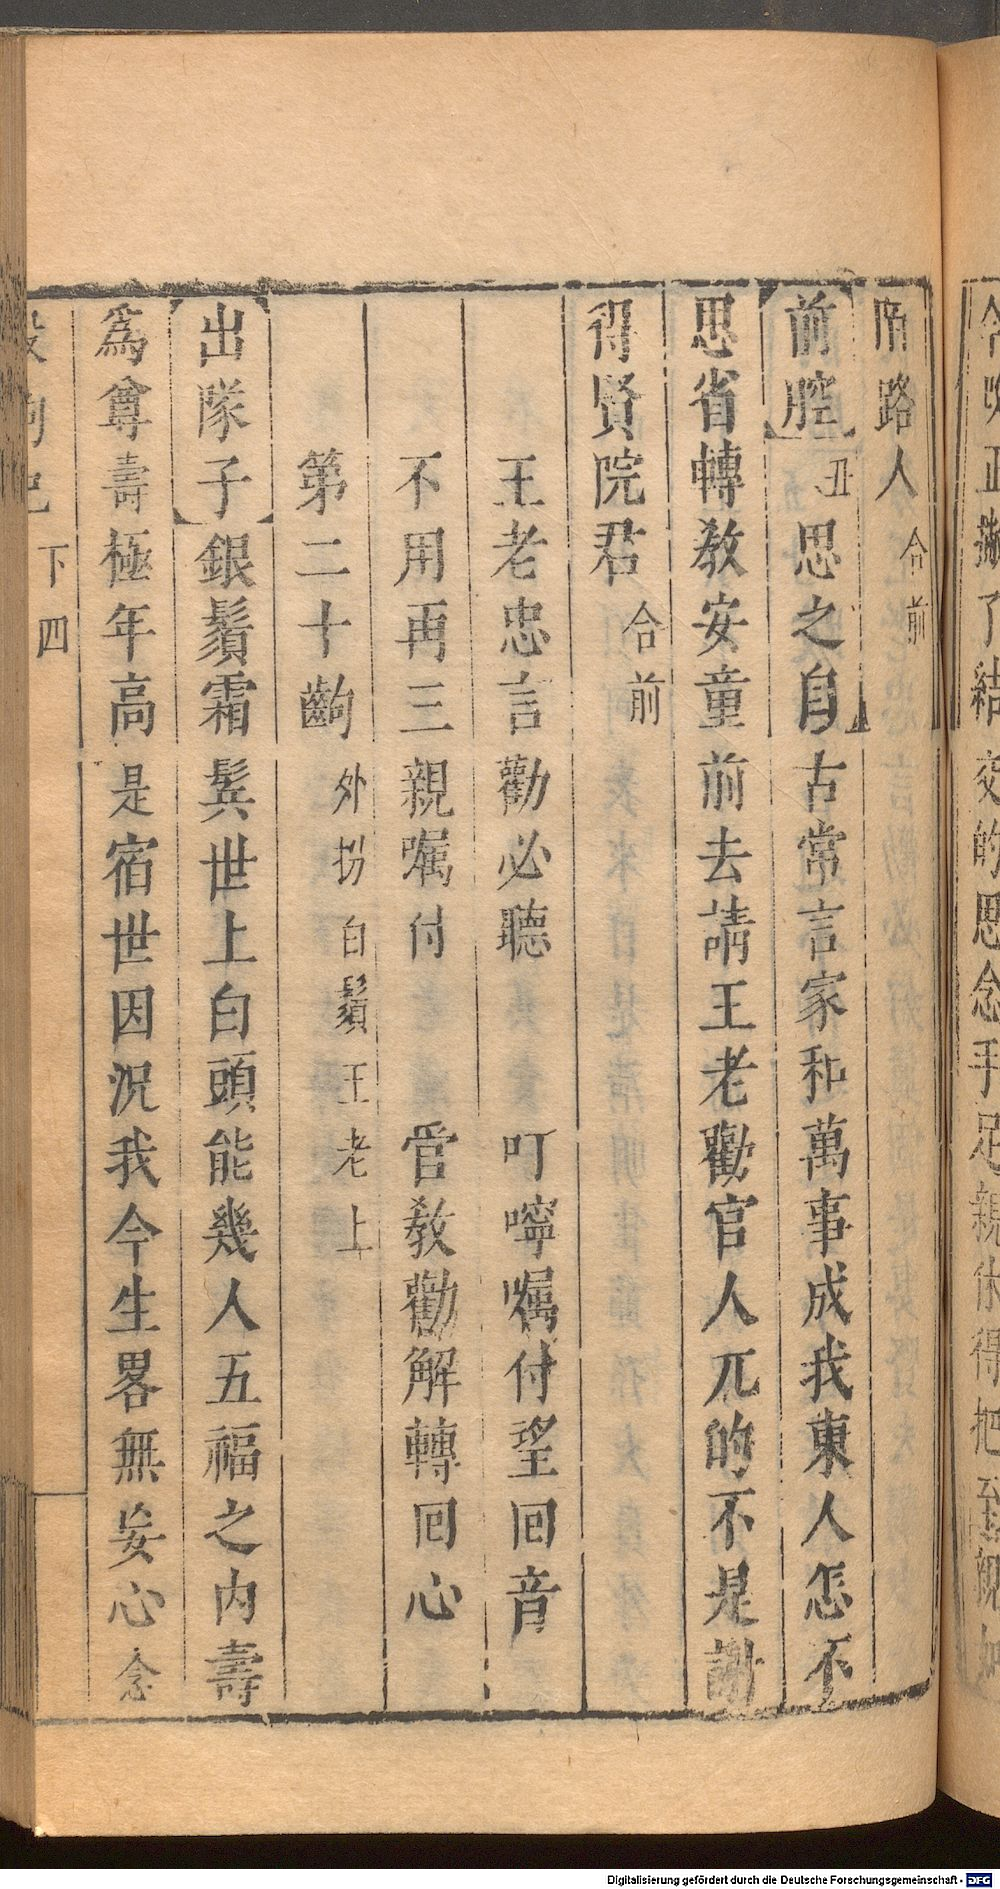 路人 合前
前腔 丑 思之自古常言家和萬事成我東人怎不
思省轉教安童前去請王老勸官人兀的不是謝
得賢院君 合前
王老忠言勸必聽 叮嚀囑付望回音
不用再三親囑付 管教勸解轉回心
第二十齣 外扮白鬚王老上
出隊子 銀鬚霜鬂世上白頭能幾人五福之内壽
為尊壽極年高是宿世因況我今生畧無妄心 念
下 四
Digitalisierung gefördert durch die Deutsche Forschungsgemeinschaft - DFG